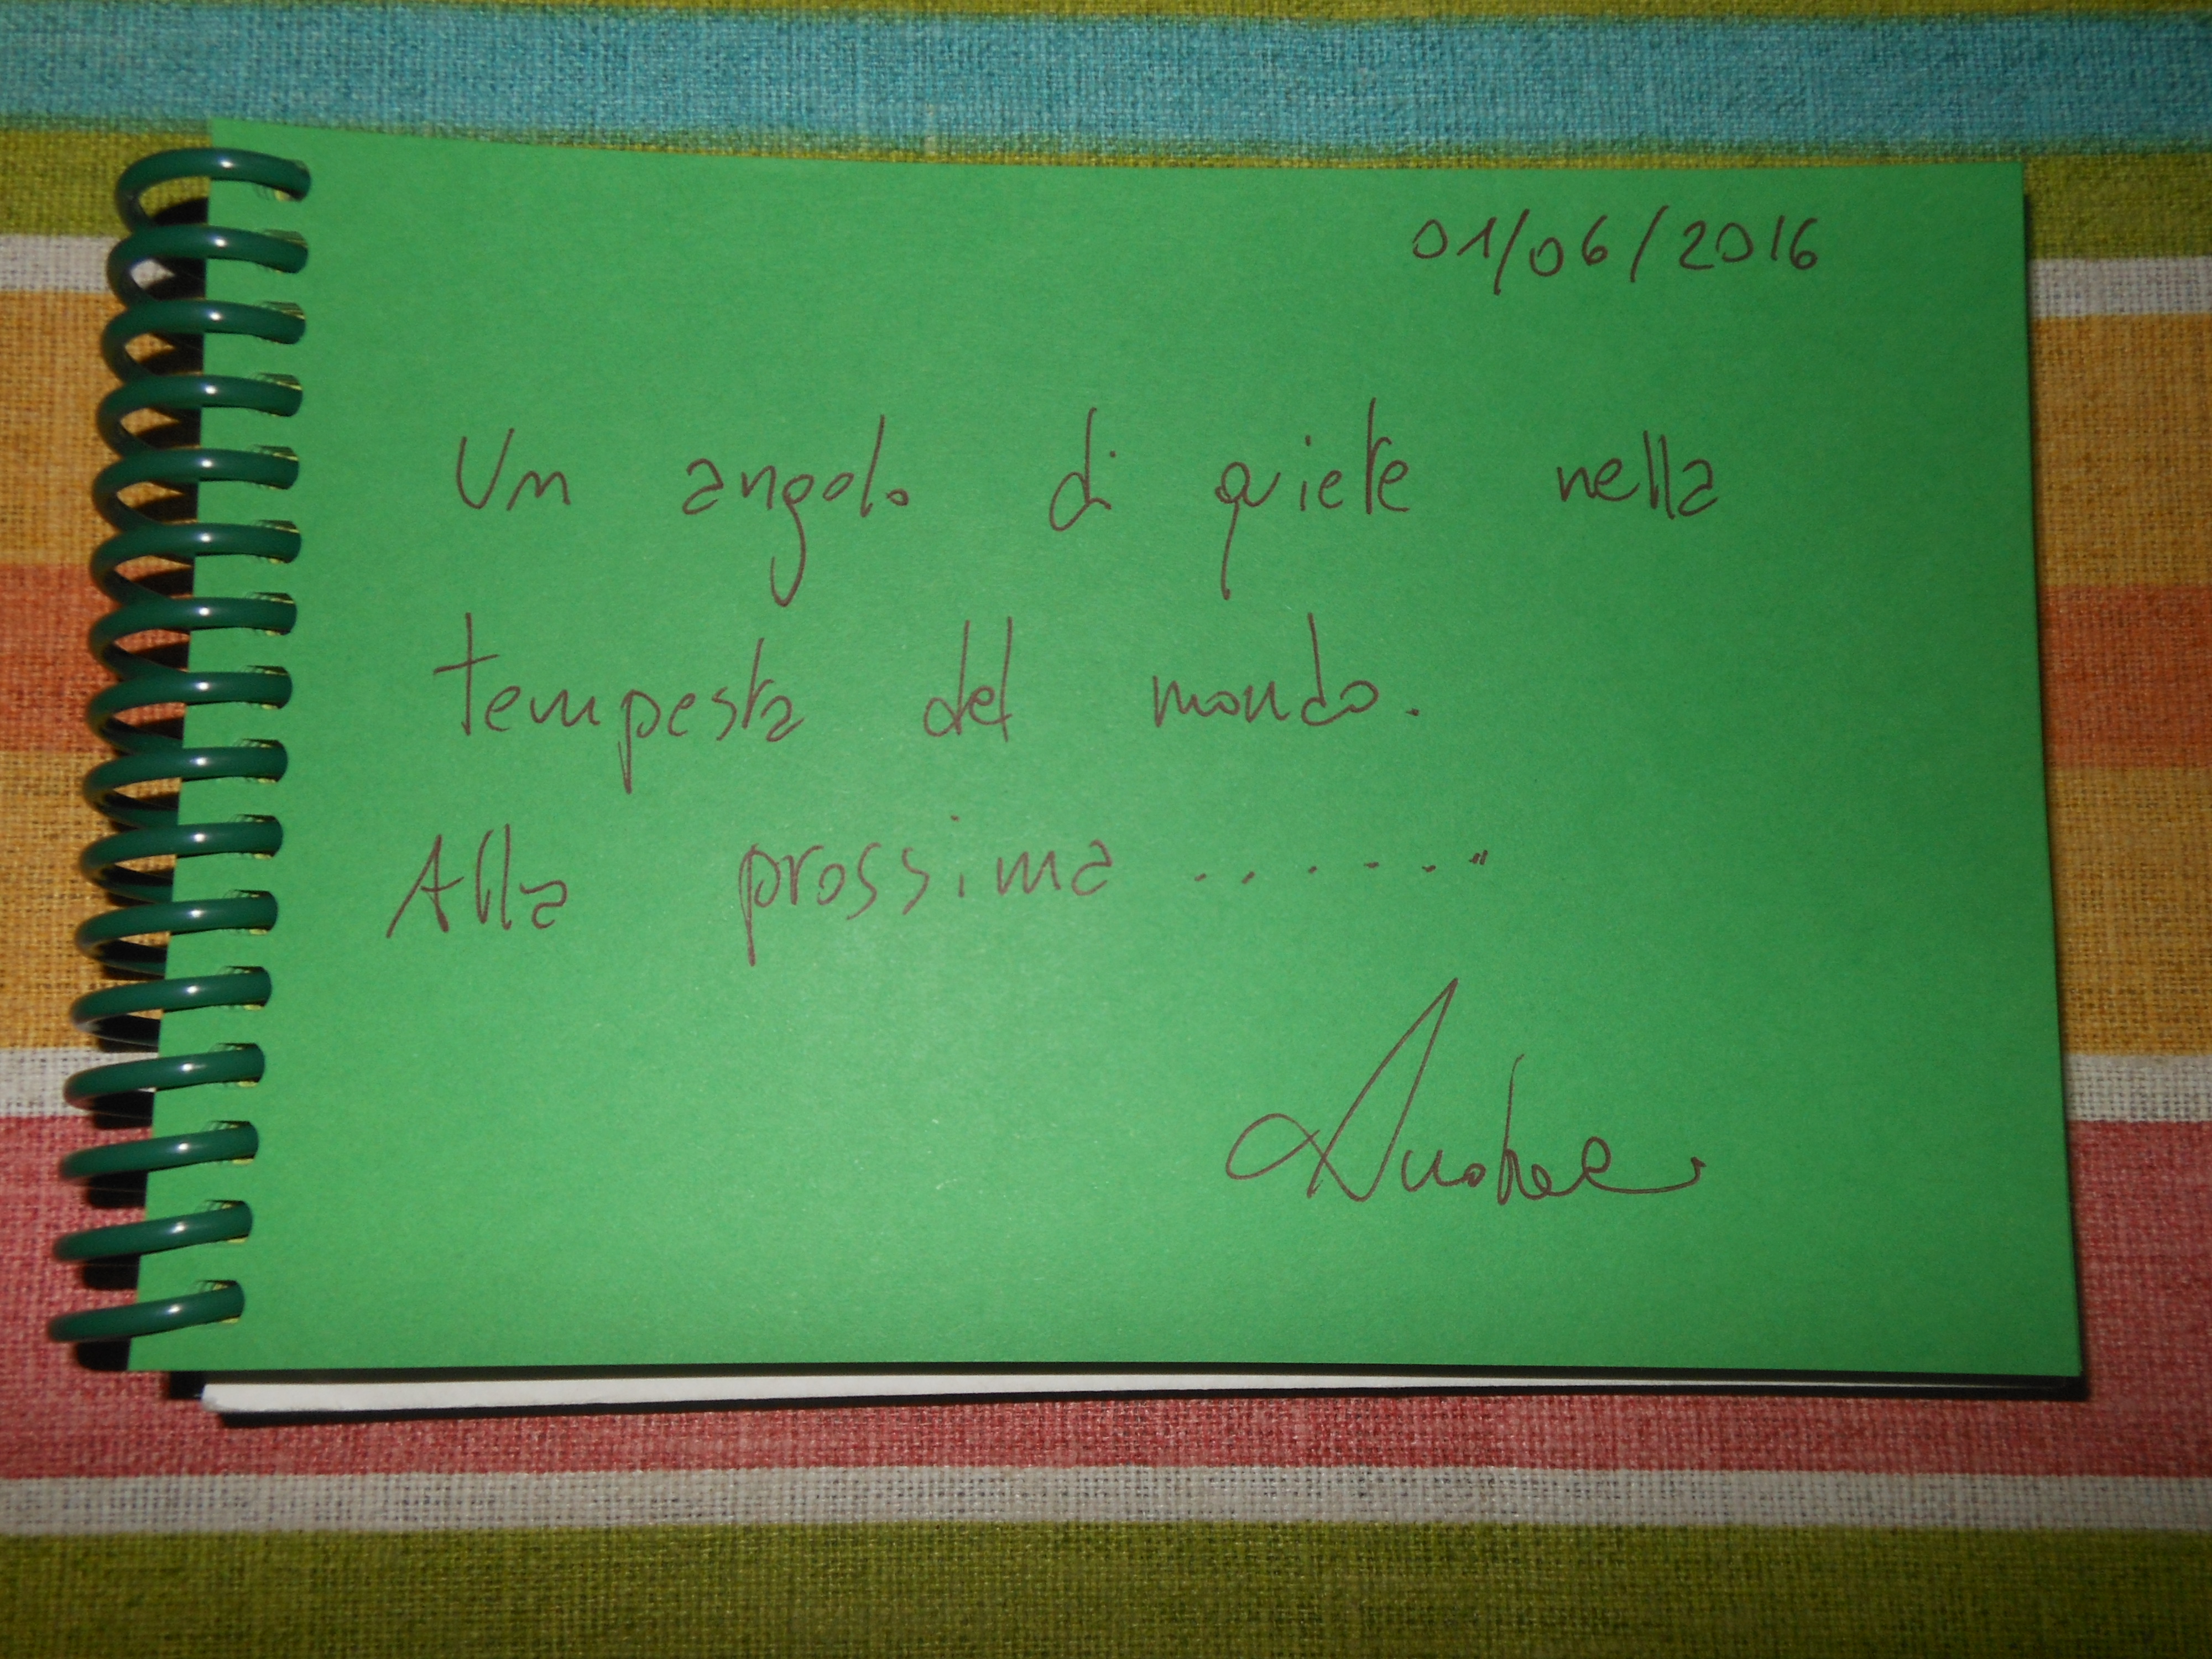 01/06/2016
Un angolo di quiete nella
tempesta del mondo.
Alla prossima .......
Andrea